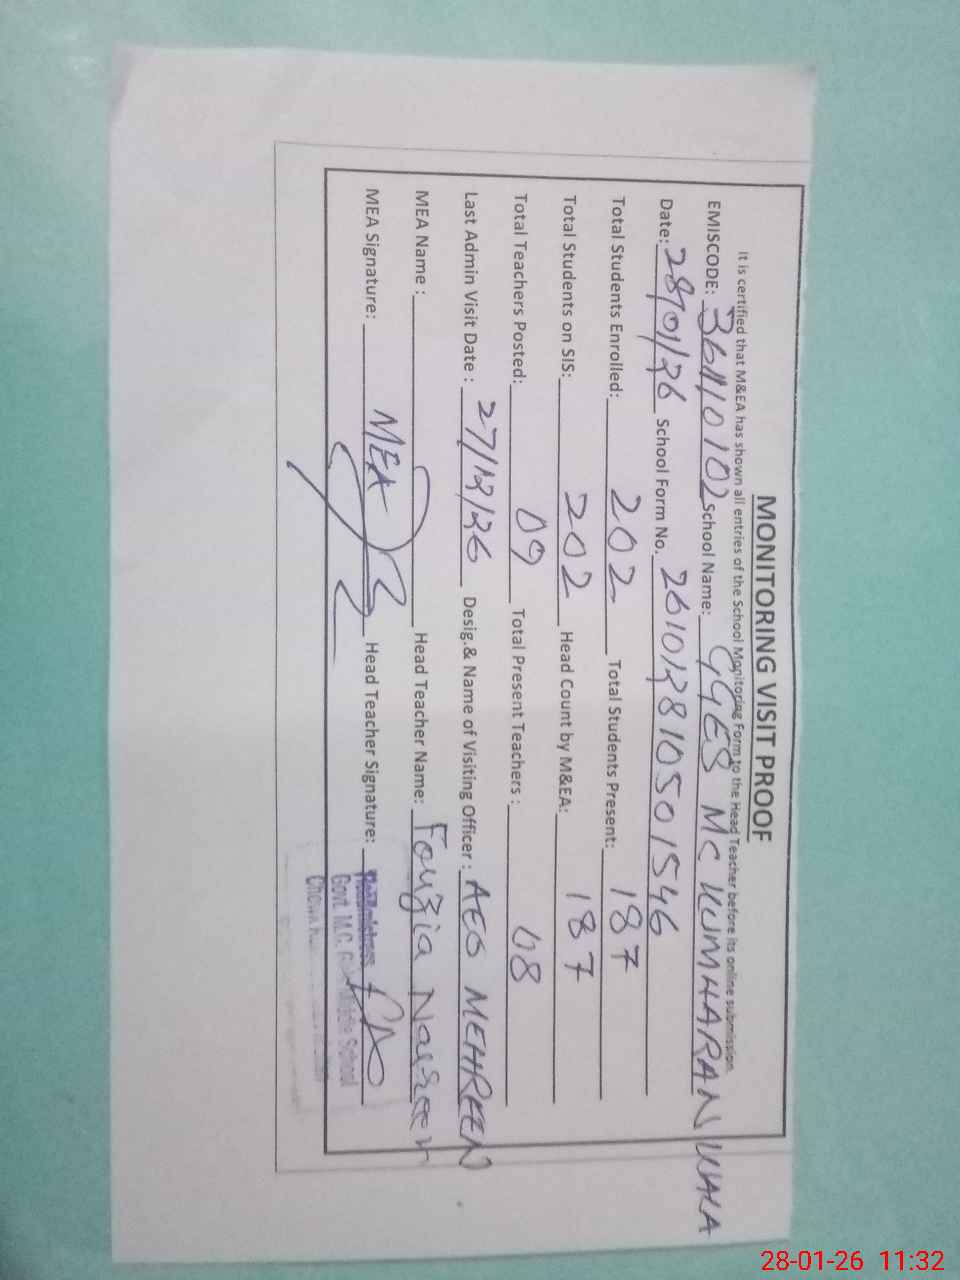 MONITORING VISIT PROOF
It is certified that M&EA has shown all entries of the School Monitoring Form to the Head Teacher before its online submission.
EMISCODE: 36110102 School Name: GGES MC KUMHARAN WALA
Date: 28/01/26 School Form No. 26101281050 1546
Total Students Enrolled: 202 Total Students Present: 187
Total Students on SIS: 202 Head Count by M&EA: 187
Total Teachers Posted: 09 Total Present Teachers : 08
Last Admin Visit Date : 27/12/26 Desig.& Name of Visiting Officer : AEO MEHREEN
MEA Name : Head Teacher Name: Fouzia Nasreen
MEA Signature: MEA Head Teacher Signature:
Headmistress
Govt. M.C. Middle School
28-01-26 11:32